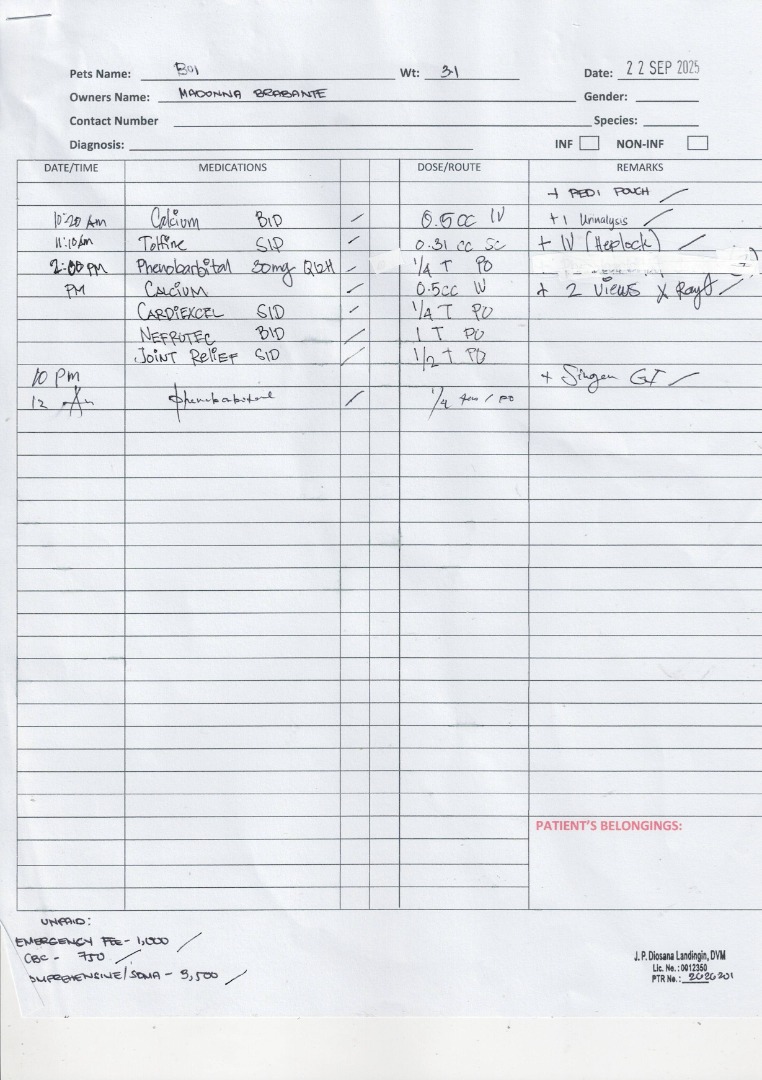 Pets Name: BOI Wt: 3.1 Date: 22 SEP 2025
Owners Name: MADONNA BRABANTE Gender:
Contact Number Species:
Diagnosis: INF NON-INF
DATE/TIME MEDICATIONS DOSE/ROUTE REMARKS
+ PEDI POUCH
10:20 Am Calcium BID 0.5cc IV +1 Urinalysis
11:10 Am Tolfine SID 0.31 cc SC + IV (Heplock)
2:00 PM Phenobarbital 30mg Q12H 1/4 T PO
PM CALCIUM 0.5cc IV + 2 Views X Ray
CARDIEXCEL SID 1/4 T PO
NEFROTEC BID 1 T PO
JOINT RELIEF SID 1/2 T PO
10 Pm + Singen GI
12 Am phenobarbital 1/4 / PO
PATIENT'S BELONGINGS:
UNPAID:
EMERGENCY FEE - 1,000
CBC - 750
/SDMA - 3,500
J. P. Diosana Landingin, DVM
Lic. No.: 0012350
PTR No.: 2026201